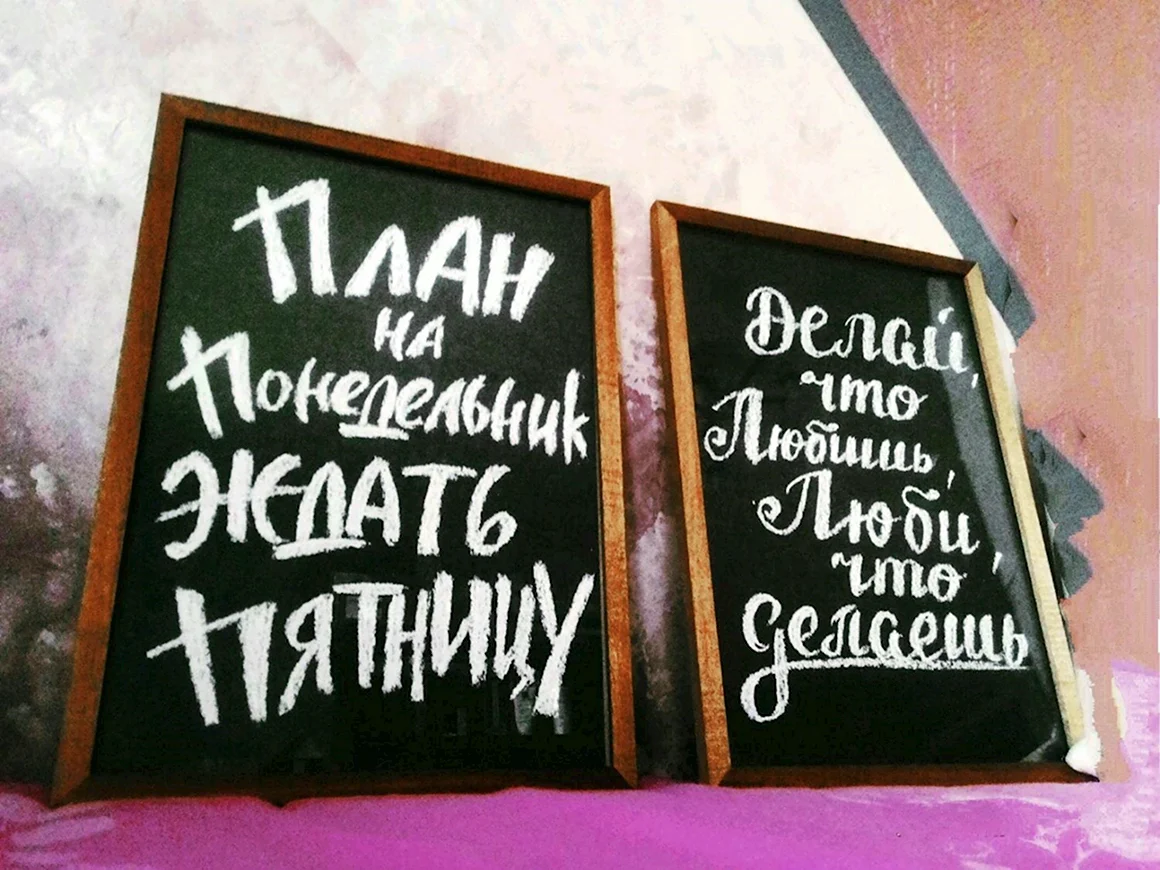 ПЛАН
НА
Понедельник
ЖДАТЬ
ПЯТНИЦУ
Делай,
что
Любишь,
Люби,
что
делаешь